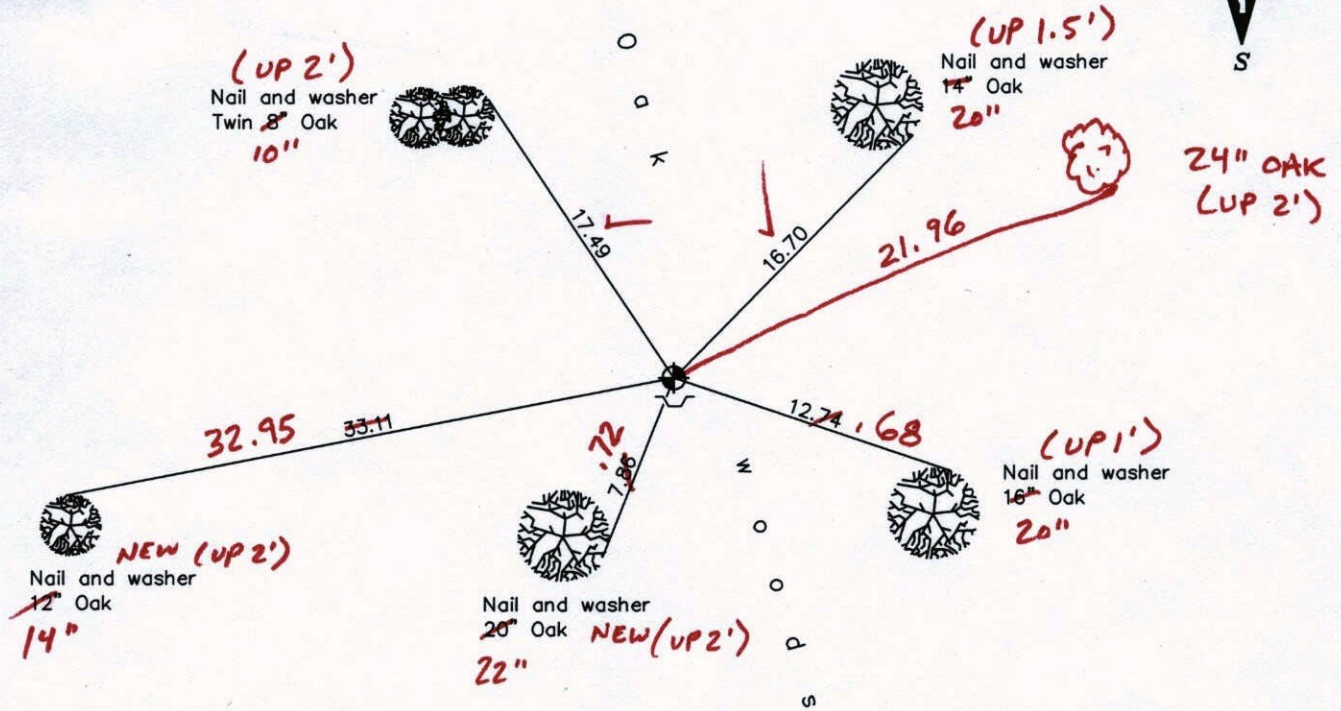 (UP 2')
Nail and washer
Twin 8" Oak
10"
Oak
(UP 1.5')
Nail and washer
14" Oak
20"
S
24" OAK
(UP 2')
17.49
16.70
21.96
32.95
33.11
12.74 .68
.72
7.86
(UP 1')
Nail and washer
16" Oak
20"
woods
NEW (UP 2')
Nail and washer
12" Oak
14"
Nail and washer
20" Oak NEW (UP 2')
22"